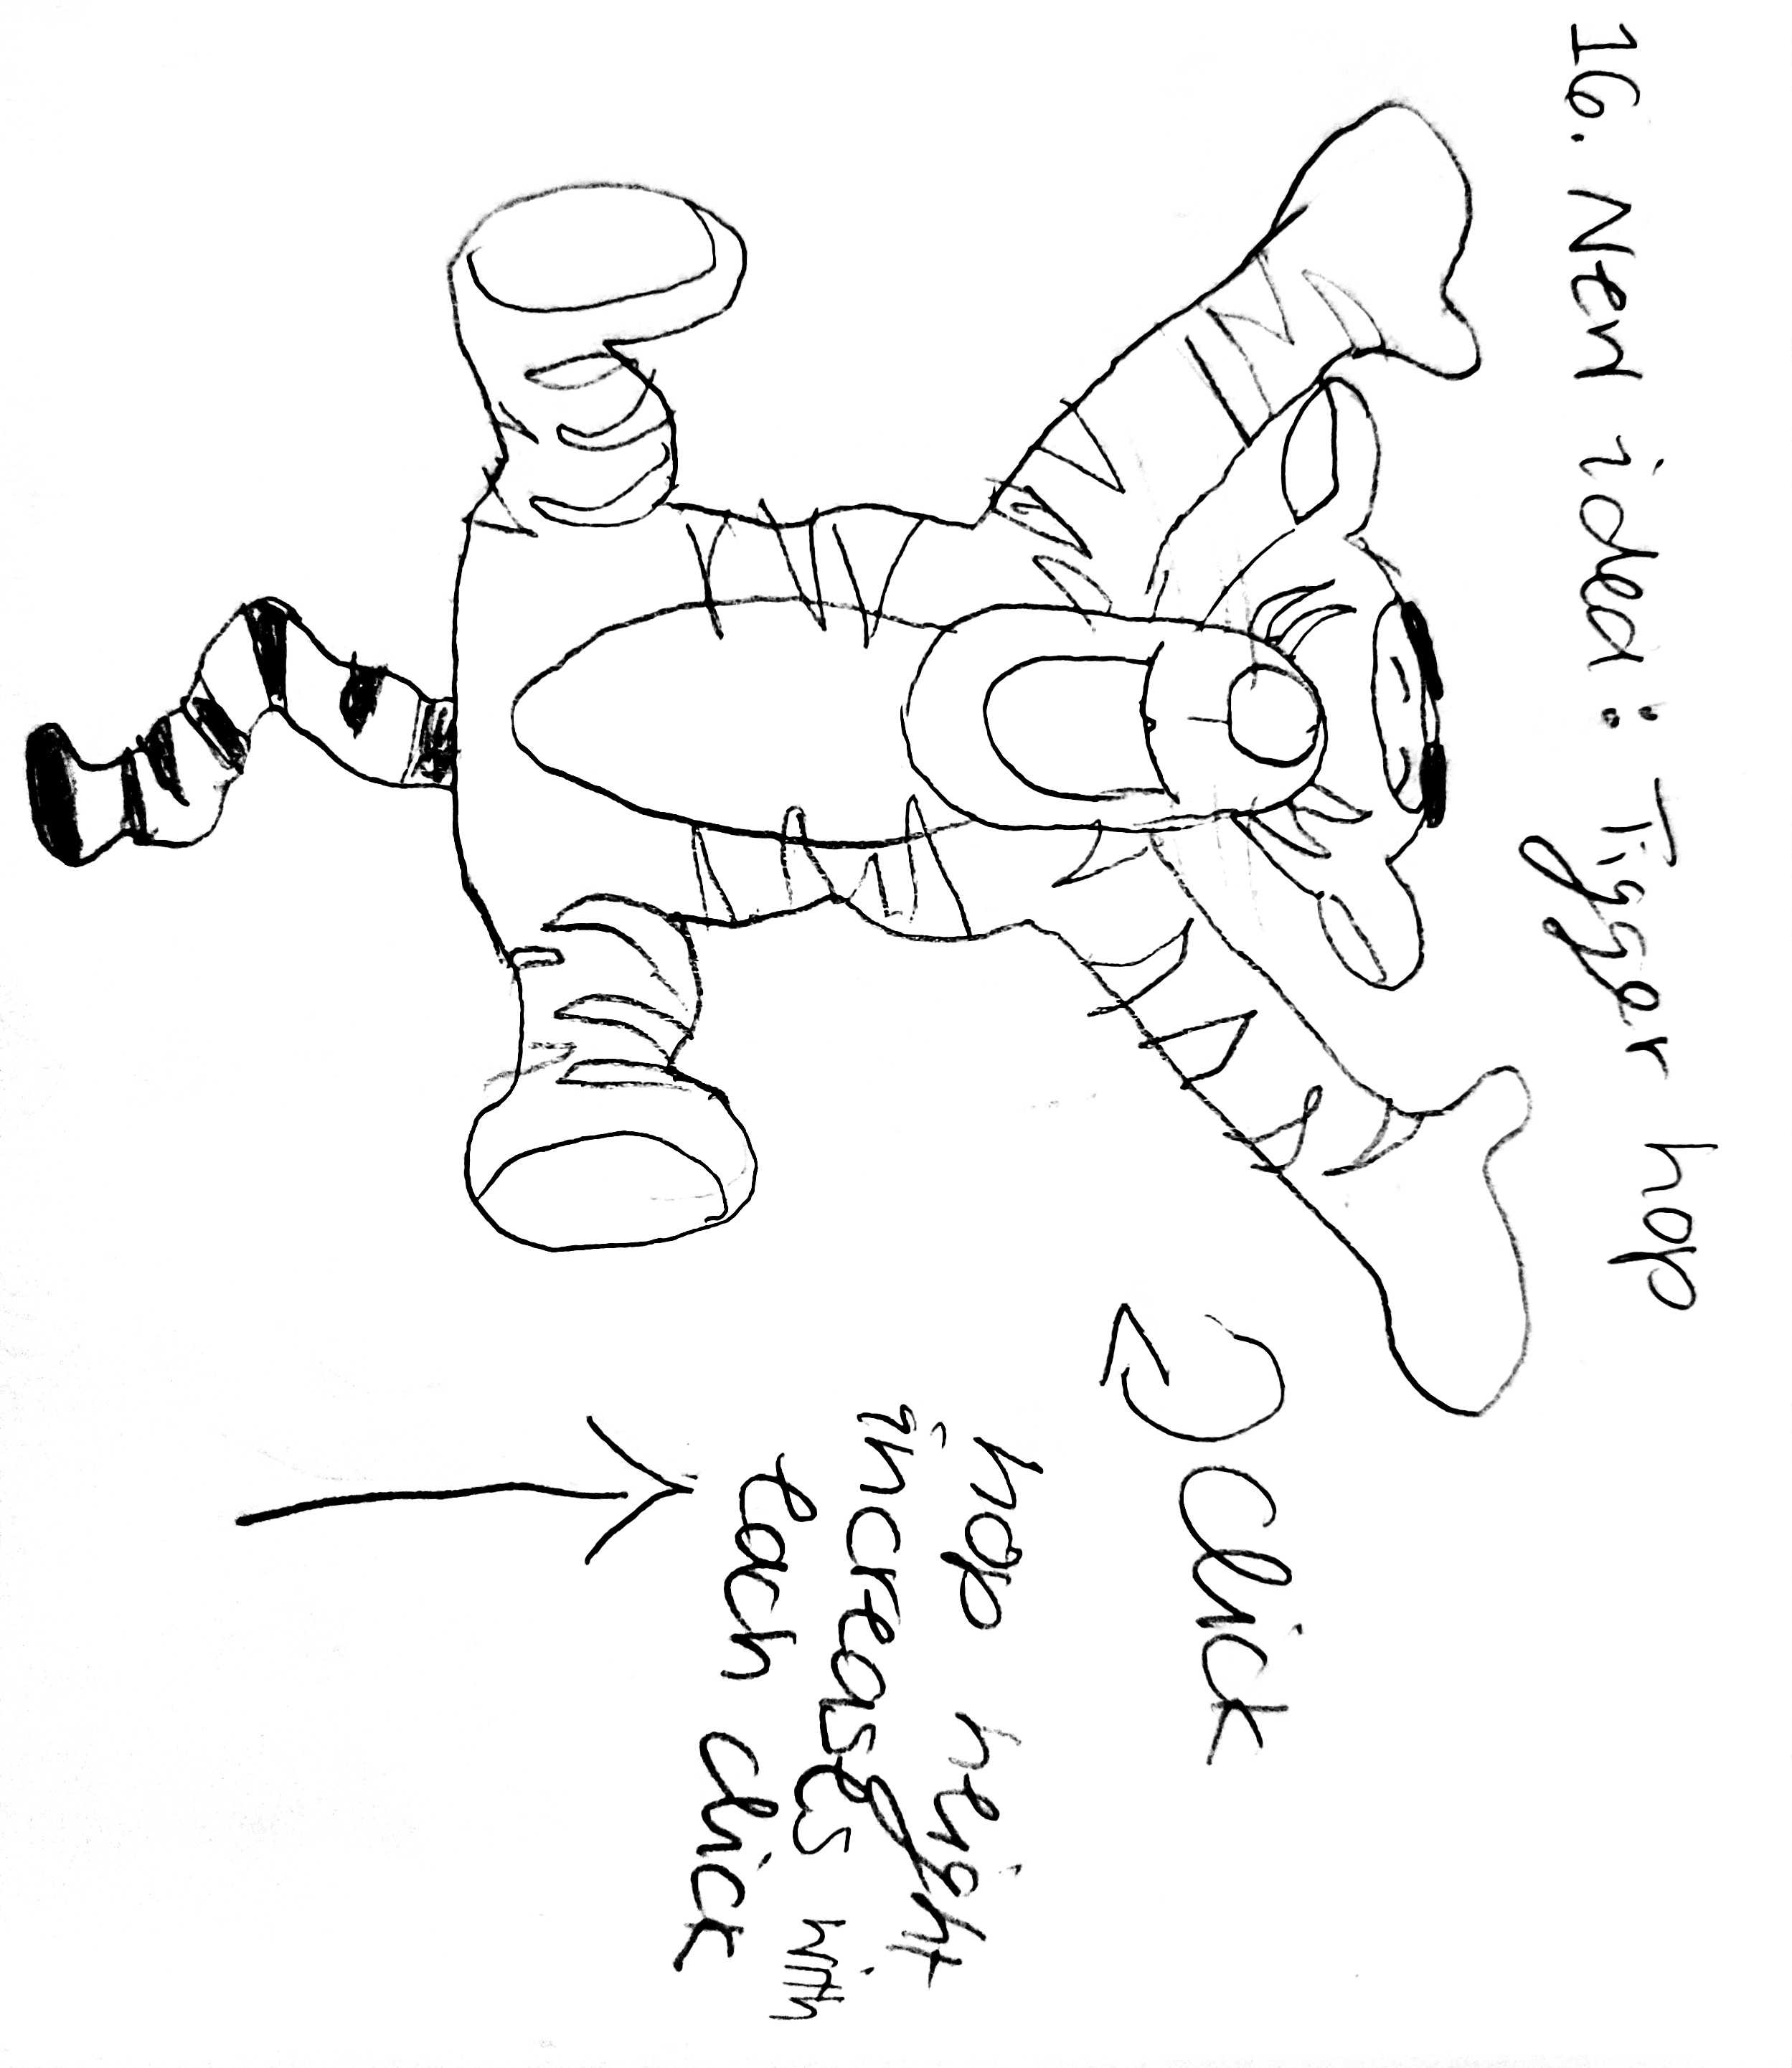 16. New idea: Tigger hop
click
hop height
increases with
each click